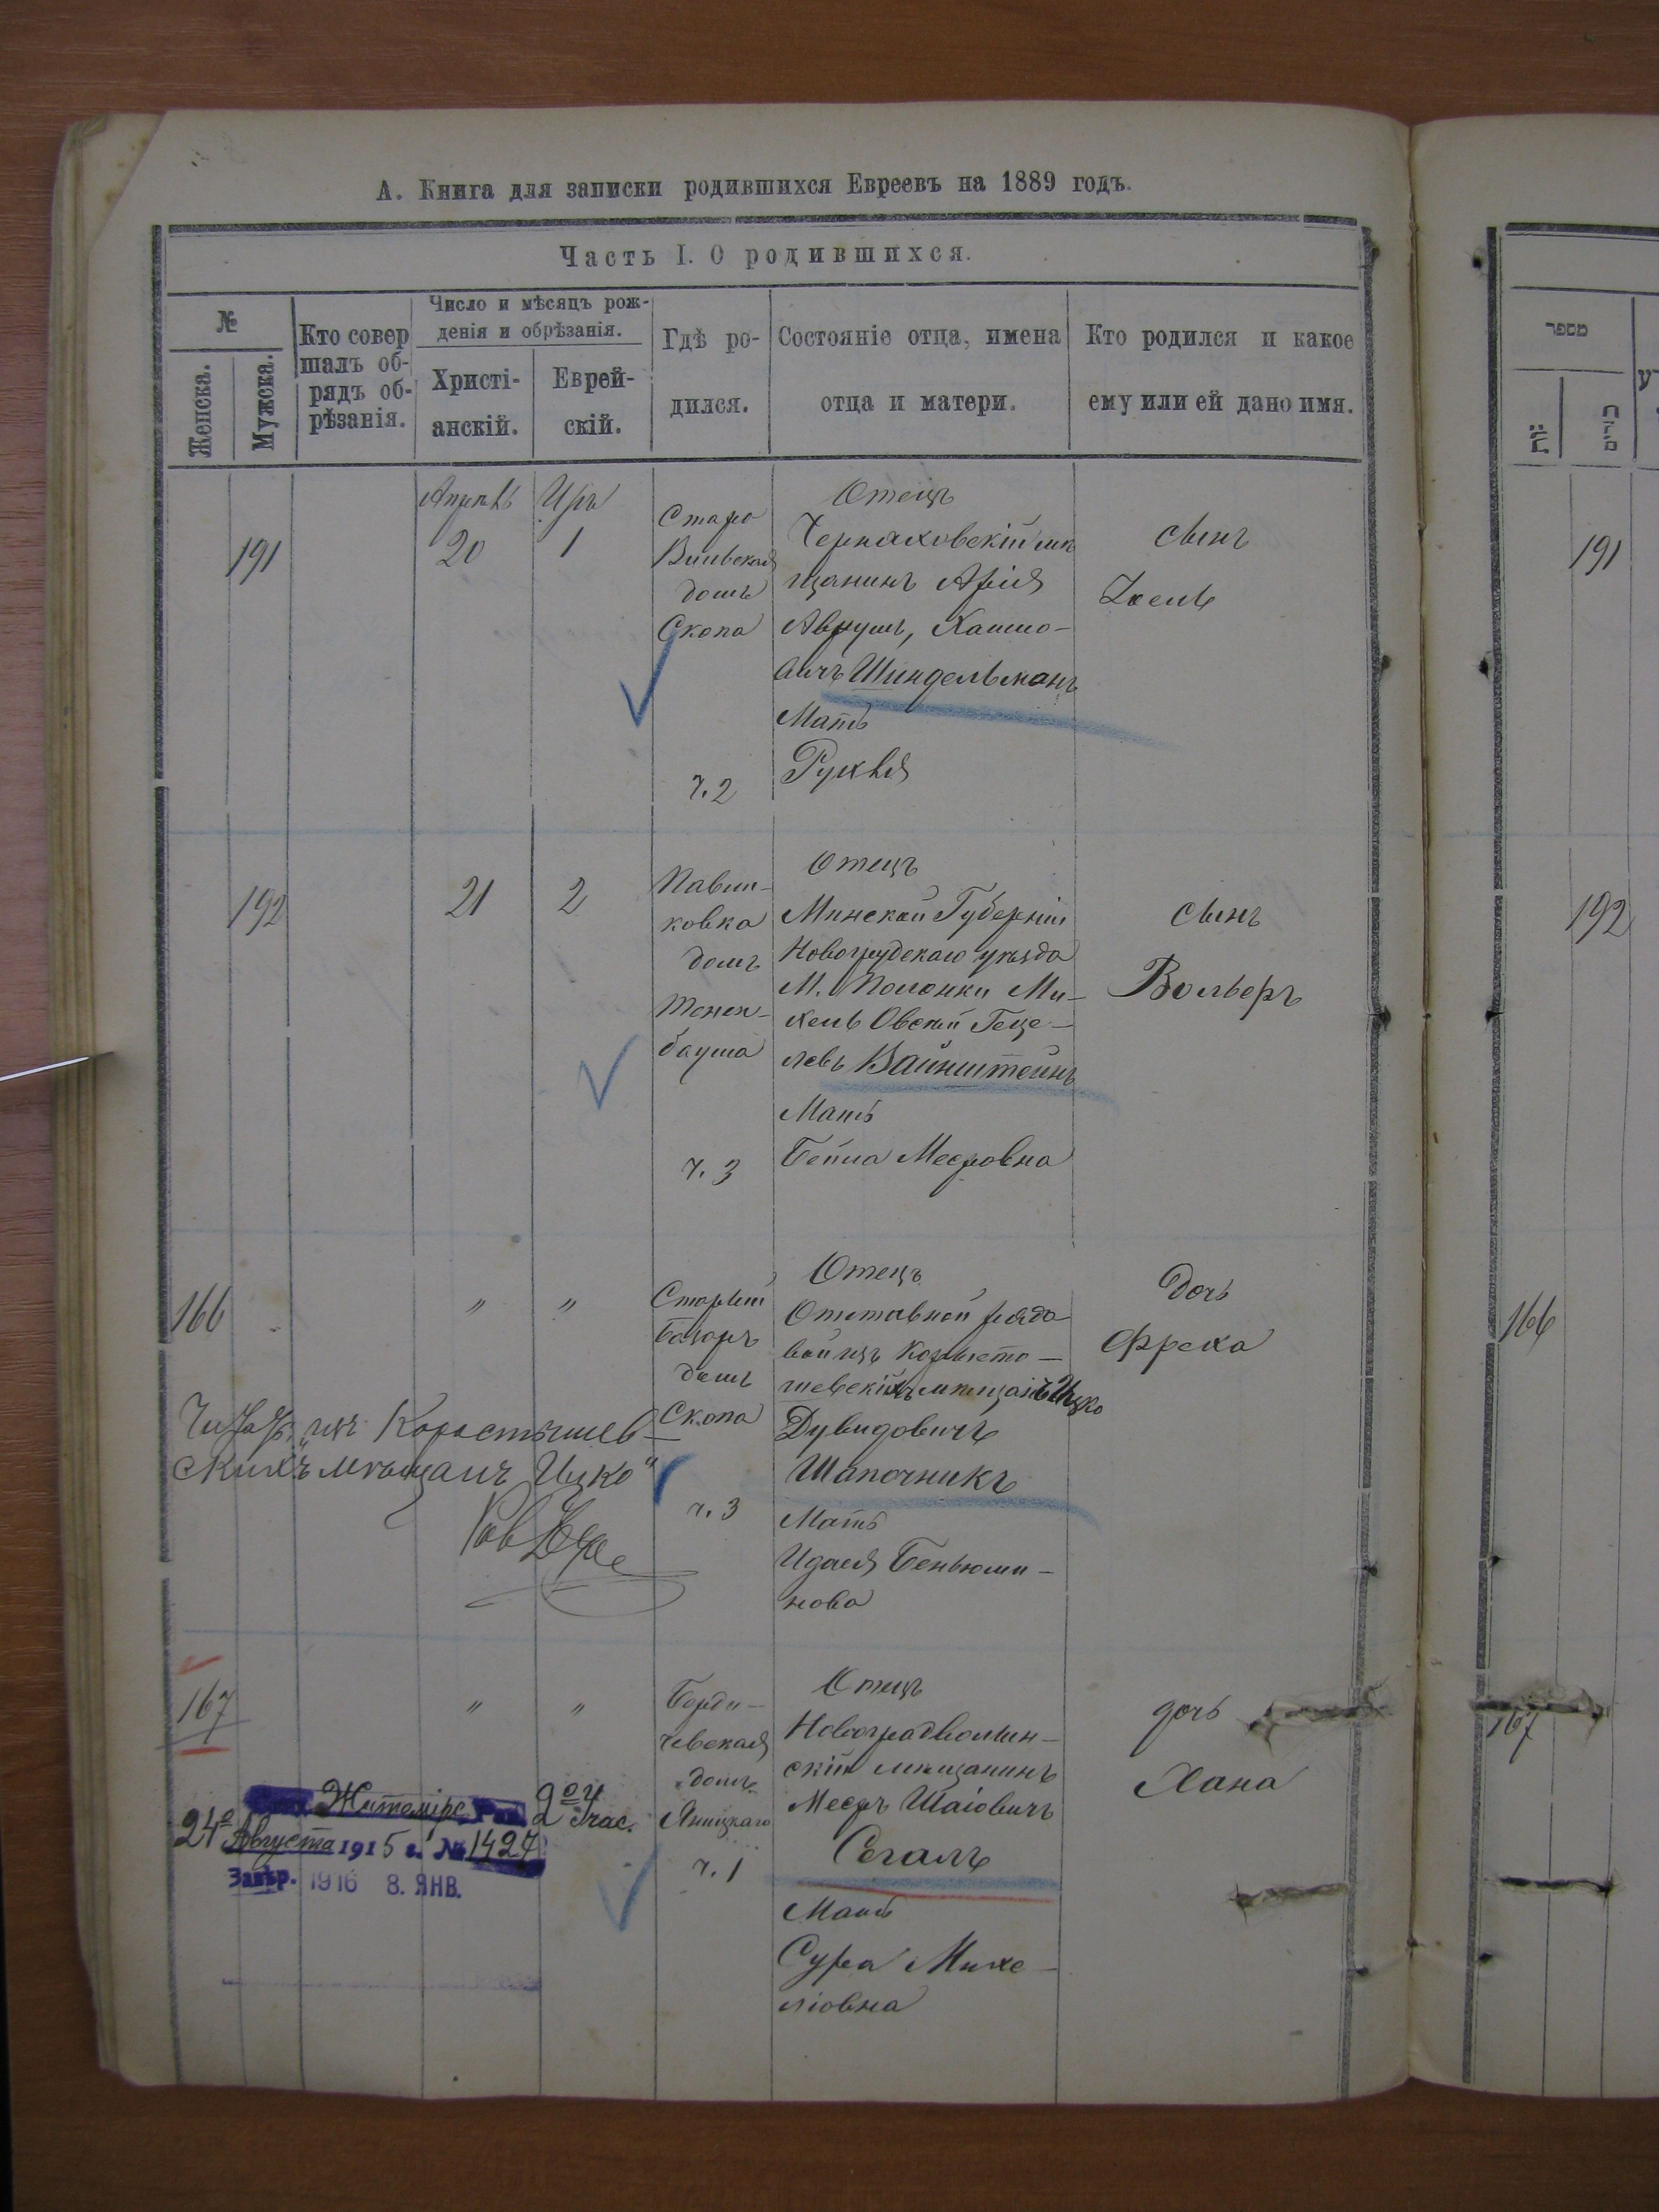 А. Книга для записки родившихся Евреевъ на 1889 годъ.
Часть I. О родившихся.
№
Женска.
Мужска.
Кто совер
шалъ об-
рядъ об-
рѣзанія.
Число и мѣсяцъ рож-
денія и обрѣзанія.
Христі-
анскій.
Еврей-
скій.
Гдѣ ро-
дился.
Состояніе отца, имена
отца и матери.
Кто родился и какое
ему или ей дано имя.
191
Апрель
20
1
Старо
Вильская
домъ
Скопа
ч. 2
Отецъ
Черняховскій мѣ
щанинъ Арія
Аврумъ, Хаимо-
вичъ Шиндельманъ
Мать
Рухля
сынъ
192
21
2
Павли-
ковка
домъ
Тенен-
баума
ч. 3
Отецъ
Минской Губерніи
Новогрудскаго уѣзда
М. Полонки Ми-
хель Овсей Геце-
левъ Вайнштейнъ
Мать
Бейла Мееровна
сынъ
Вольферъ
166
"
"
Старый
Базаръ
домъ
Скопа
ч. 3
Отецъ
Отставной рядо
вой изъ Коросты-
шевскихъ мѣщанъ Ицко
Дувидовичъ
Шапочникъ
Мать
Идася Беньюми-
нова
дочь
Фрейа
изъ Коростышев-
скихъ мѣщанъ Ицко"
167
"
"
Берди-
чевская
домъ
Яницкаго
ч. 1
Отецъ
Новоградволын-
скій мѣщанинъ
Мееръ Шаіовичъ
Сегалъ
Мать
Сура Михе-
ліовна
дочь
Хана
Житомірс. 2ой Учас.
24о Августа 1915 г. № 1427
Завѣр. 1916 8. ЯНВ.
מספר
191
192
166
167